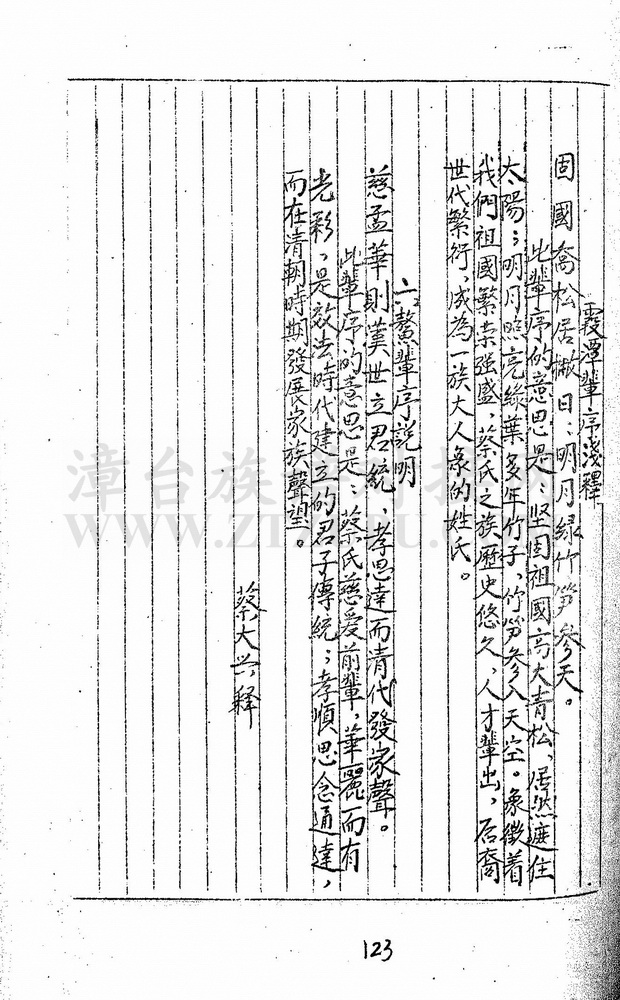 霞潭輩序淺釋
固國喬松居撇日：明月綠竹笋参天。
此輩序的意思是：坚固祖國高大青松、居然遮住
太陽；明月照亮綠葉多年竹子、竹笋参入天空。象徵着
我們祖國繁荣强盛、蔡氏之族歷史悠久、人才輩出，后裔
世代繁衍、成為一族大人象的姓氏。
六鰲輩序説明
慈孟華則漢世立君統、孝思達而清代發家聲。
此輩序的意思是：蔡氏慈爱前輩，華麗而有
光彩、是效法時代建立的君子傳統；孝順思念通達，
而在清朝時期發展家族聲望。
蔡大兴释
123